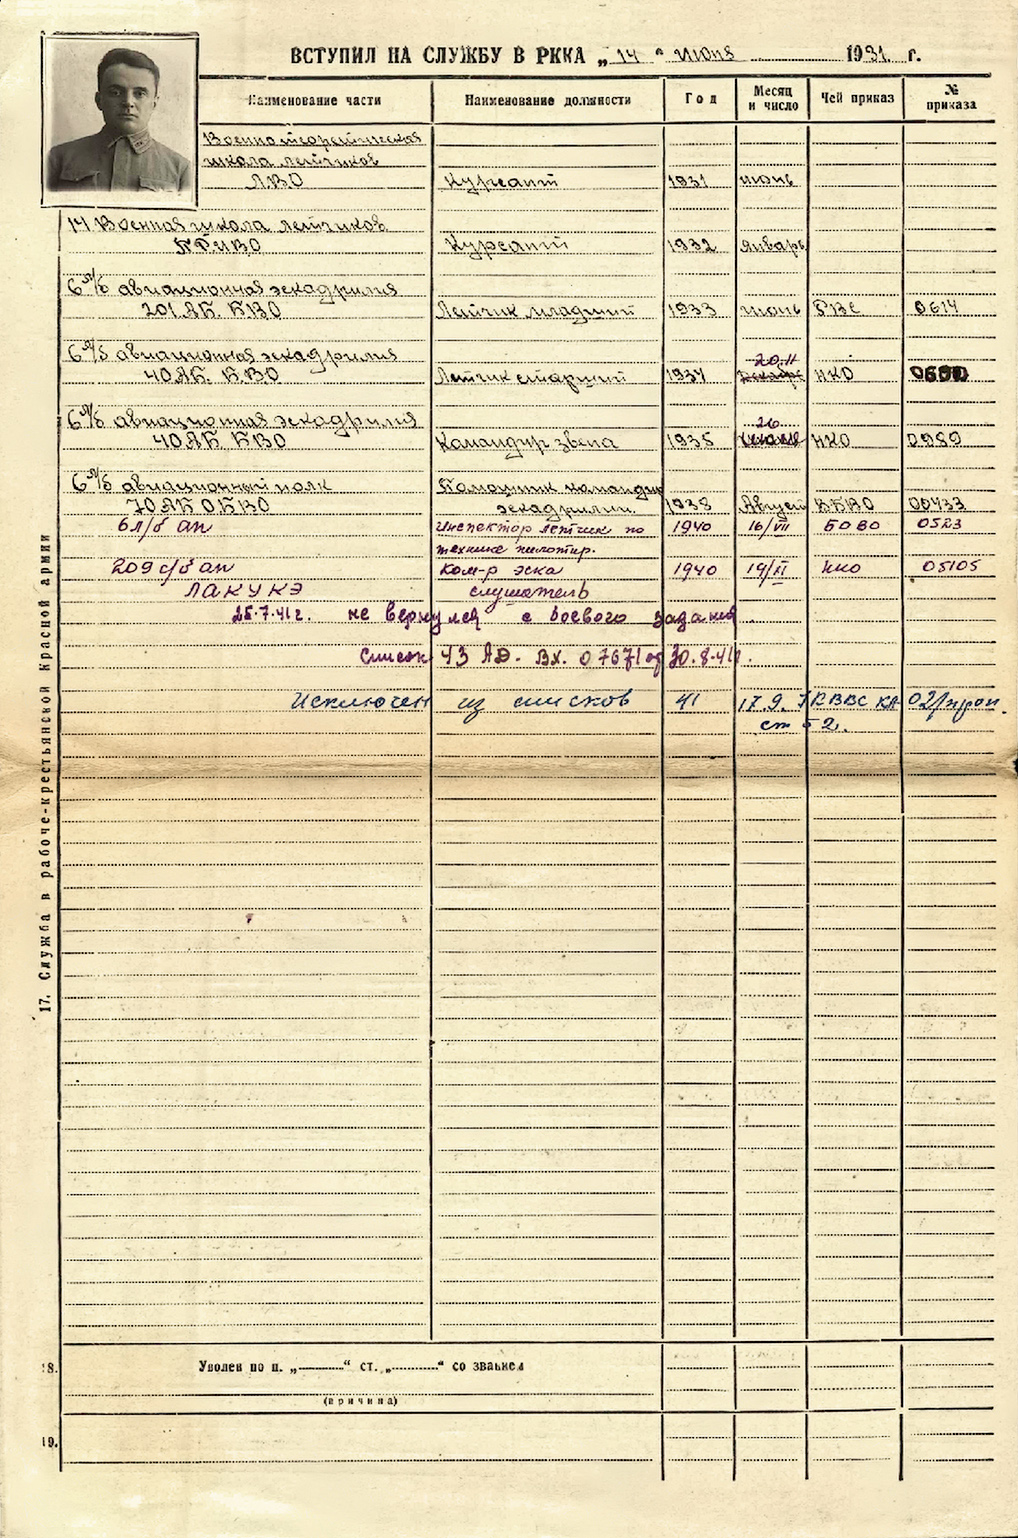 ВСТУПИЛ НА СЛУЖБУ В РККА „14“ июня 1931 г.
Наименование части Наименование должности Год Месяц и число Чей приказ № приказа
Военно теоретическая
школа летчиков
ЛВО Курсант 1931 июнь
14 Военная школа летчиков
ПРИВО Курсант 1932 январь
6 л/б авиационная эскадрилия
201 АБ. БВО Летчик младший 1933 июнь РВС 0614
6 л/б авиационная эскадрилия 20.11
40 АБ. БВО Летчик старший 1934 декабрь НКО
6 л/б авиационная эскадрилия 26
40 АБ. БВО Командир звена 1935 НКО 0989
6 л/б авиационный полк Помощник командир
70 АБ ОБВО эскадрилии. 1938 Август КБВО 00433
6 л/б ап Инспектор летчик по 1940 16/VII БОВО 0523
технике пилотир.
209 с/б ап Ком-р эска 1940 19/XI нко 05105
ЛАКУКЭ слушатель
25.7.41г. не вернулся с боевого задания.
Список 43 АД. Вх. 07671 от 30.8.41г.
Исключен из списков 41 17.9. ВВС КА 02/
ст 52.
17. Служба в рабоче-крестьянской Красной армии
18. Уволен по п. „———“ ст. „———“ со званием
(причина)
19.